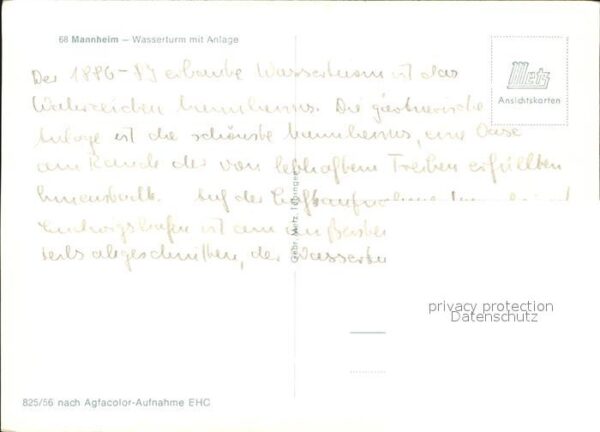 68 Mannheim – Wasserturm mit Anlage
Metz
Ansichtskarten
Der 1886-89 erbaute Wasserturm ist das
Wahrzeichen Mannheims. Die gärtnerische
Anlage ist die schönste Mannheims, eine Oase
am Rande der von lebhaftem Treiben erfüllten
Innenstadt. Auf der Luftaufnahme
Ludwigshafen ist am äußersten
teils abgeschnitten, der Wassertu
Gebr. Metz, Tübingen
privacy protection
Datenschutz
825/56 nach Agfacolor-Aufnahme EHC